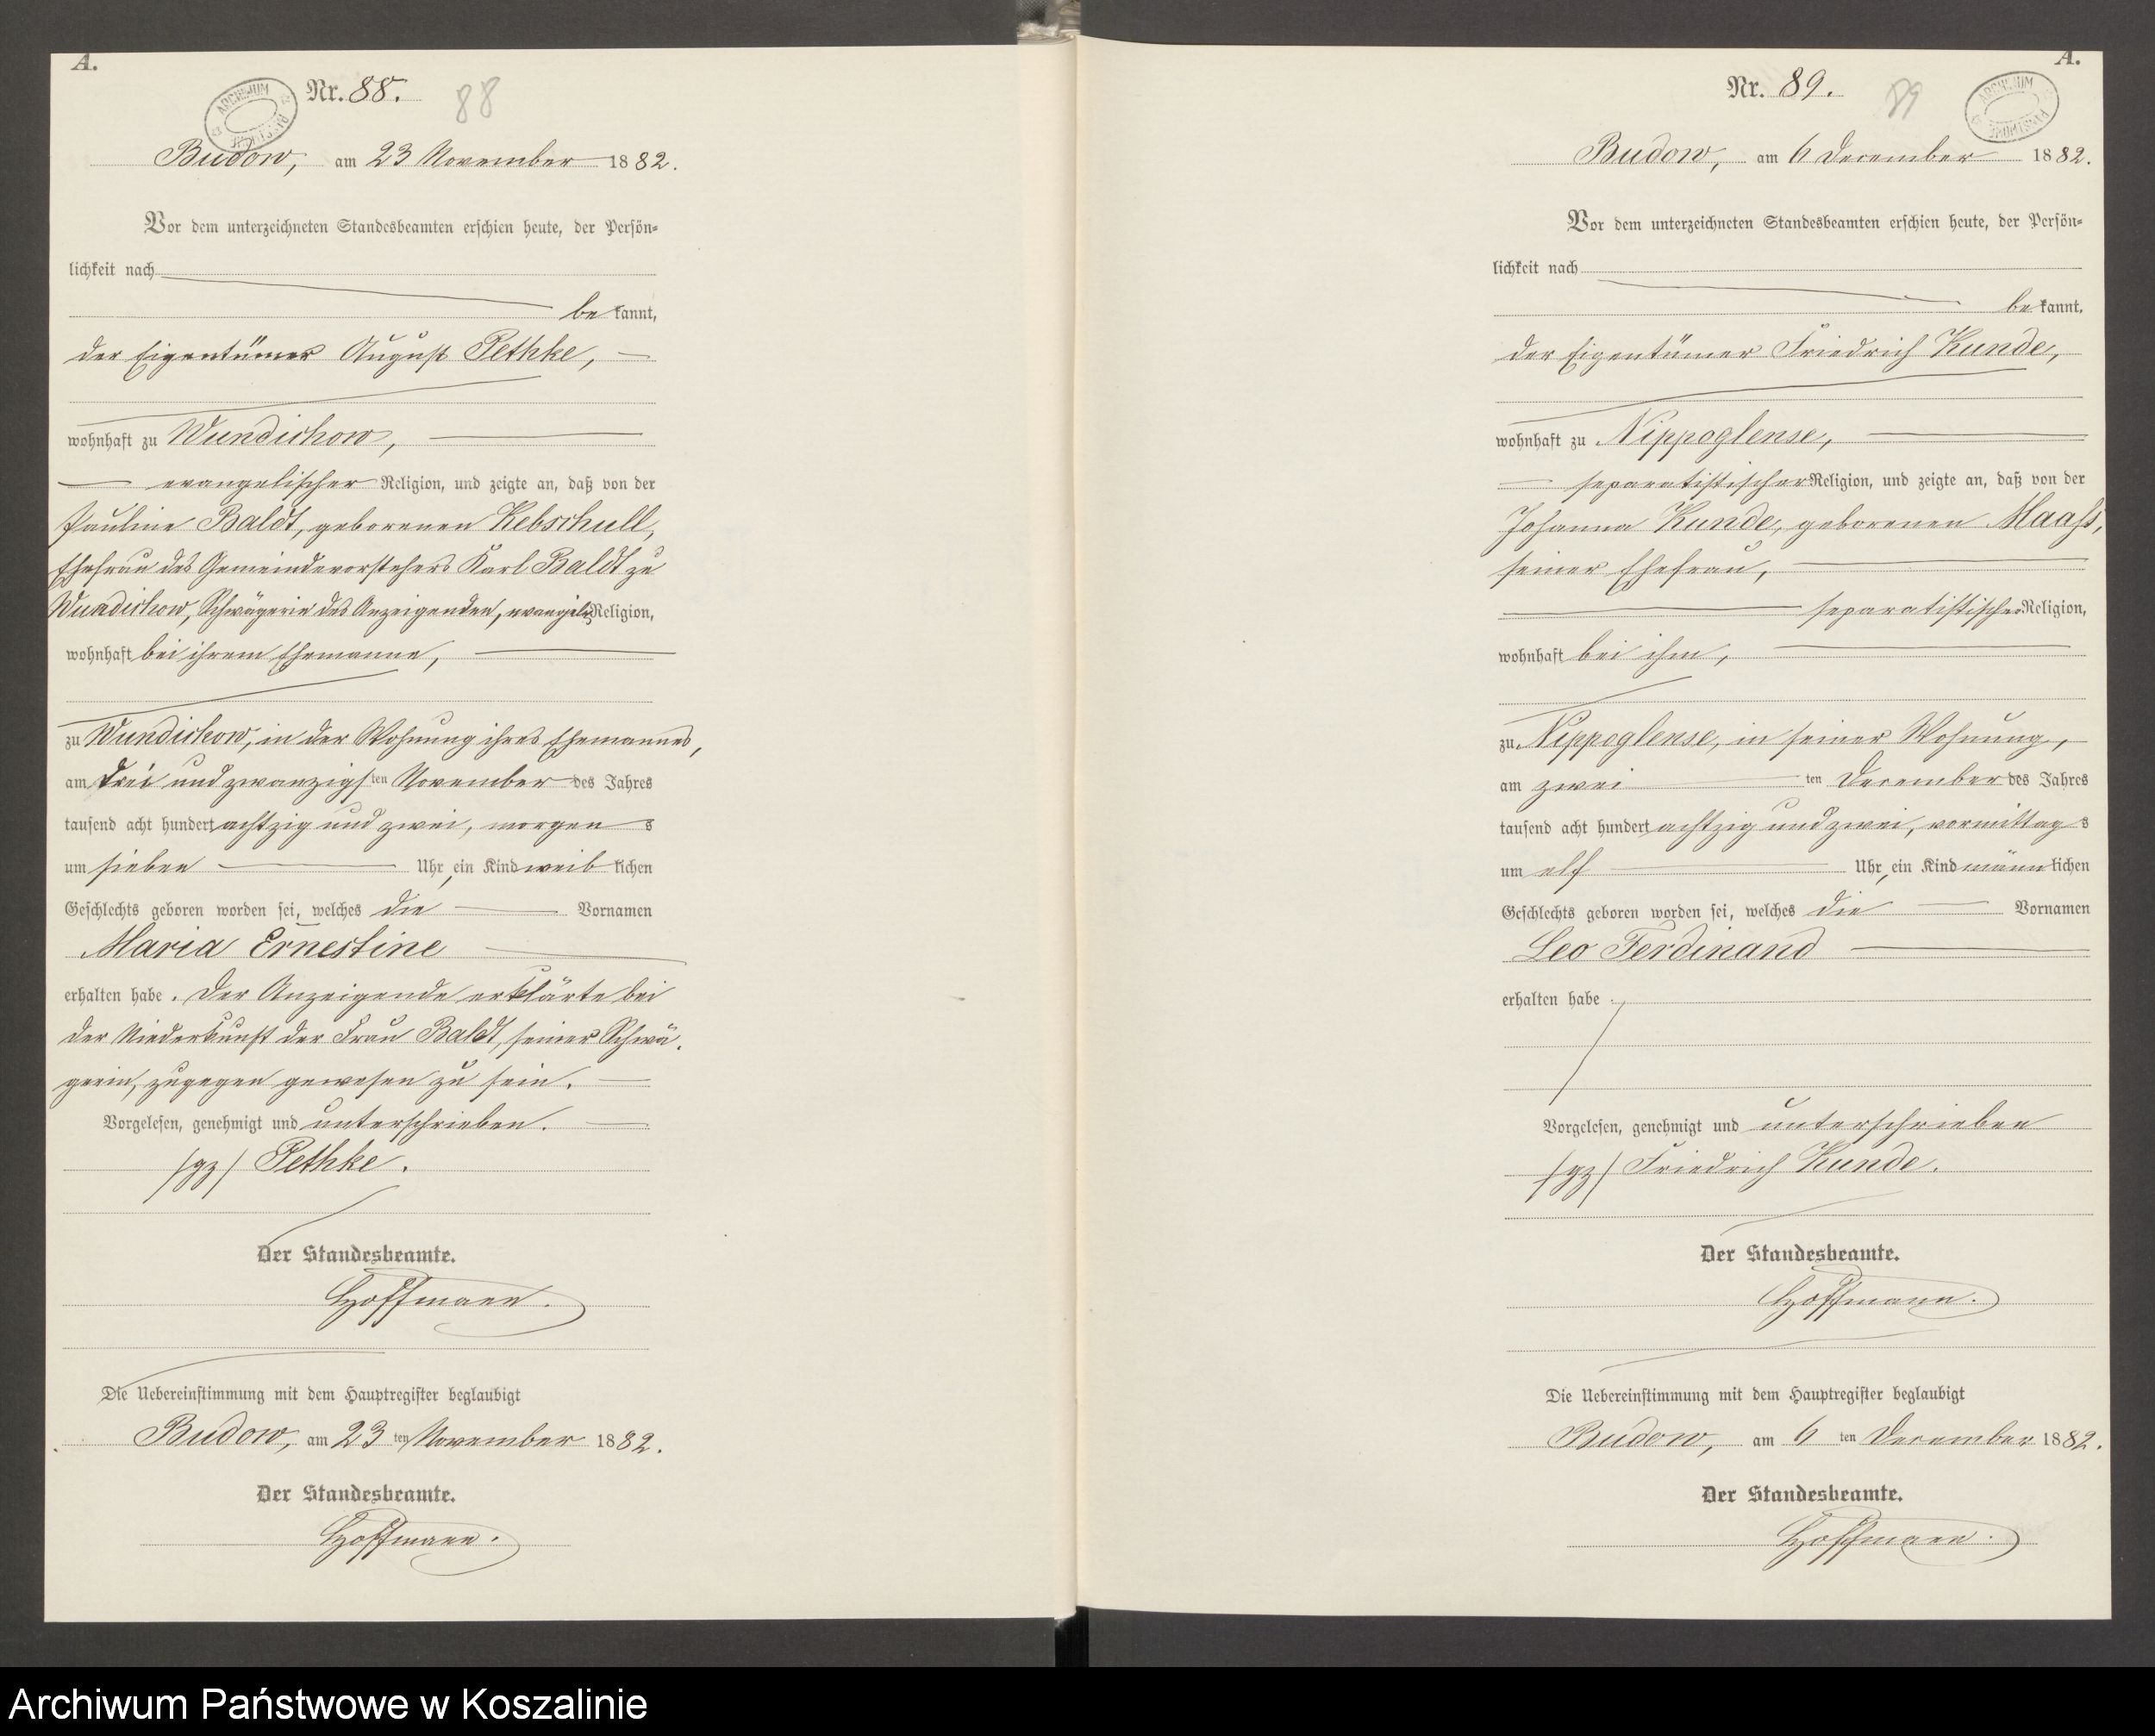 A.
Nr. 88.
88
ARCHIWUM PAŃSTWOWE
Budow, am 23 November 1882.
Vor dem unterzeichneten Standesbeamten erschien heute, der Persön=
lichkeit nach
be kannt,
der Eigentümer August Pethke,
wohnhaft zu Wundichow,
evangelischer Religion, und zeigte an, daß von der
Pauline Baldt, geborenen Kebschull,
Ehefrau des Gemeindevorstehers Karl Baldt zu
Wundichow, Schwägerin des Anzeigenden, evangelis Religion,
wohnhaft bei ihrem Ehemanne,
zu Wundichow, in der Wohnung ihres Ehemannes,
am drei und zwanzigsten November des Jahres
tausend acht hundert achtzig und zwei, morgen s
um sieben Uhr, ein Kind weib lichen
Geschlechts geboren worden sei, welches die Vornamen
Maria Ernestine
erhalten habe. Der Anzeigende erklärte bei
der Niederkunft der Frau Baldt, seiner Schwä-
gerin, zugegen gewesen zu sein.
Vorgelesen, genehmigt und unterschrieben.
/gz/ Pethke.
Der Standesbeamte.
Hoffmann.
Die Uebereinstimmung mit dem Hauptregister beglaubigt
Budow, am 23 ten November 1882.
Der Standesbeamte.
Hoffmann.
A.
Nr. 89.
89
ARCHIWUM PAŃSTWOWE
Budow, am 6 December 1882.
Vor dem unterzeichneten Standesbeamten erschien heute, der Persön=
lichkeit nach
be kannt,
der Eigentümer Friedrich Kunde,
wohnhaft zu Nippoglense,
separatistischer Religion, und zeigte an, daß von der
Johanna Kunde, geborenen Maaß,
seiner Ehefrau,
separatistischer Religion,
wohnhaft bei ihm,
zu Nippoglense, in seiner Wohnung,
am zwei ten December des Jahres
tausend acht hundert achtzig und zwei, vormittag s
um elf Uhr, ein Kind männ lichen
Geschlechts geboren worden sei, welches die Vornamen
Leo Ferdinand
erhalten habe.
Vorgelesen, genehmigt und unterschrieben
/gz/ Friedrich Kunde.
Der Standesbeamte.
Hoffmann.
Die Uebereinstimmung mit dem Hauptregister beglaubigt
Budow, am 6 ten December 1882.
Der Standesbeamte.
Hoffmann.
Archiwum Państwowe w Koszalinie